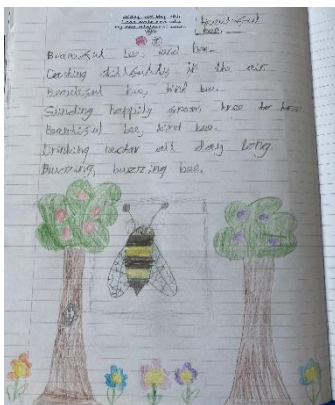 Beautiful
bee.
Beautiful bee, kind bee.
Dashing skilfully in the air.
Beautiful bee, kind bee.
Gliding happily from tree to tree.
Beautiful bee, kind bee.
Drinking nectar all day long.
Buzzing, buzzing bee.